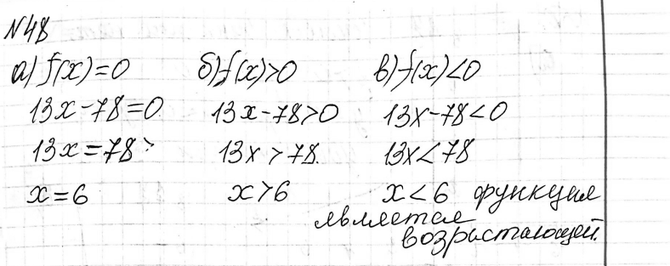 №48
а) f(x)=0 б) f(x)>0 в) f(x)<0
13x-78=0 13x-78>0 13x-78<0
13x=78 13x>78 13x<78
x=6 x>6 x<6 функция
является
возрастающей.